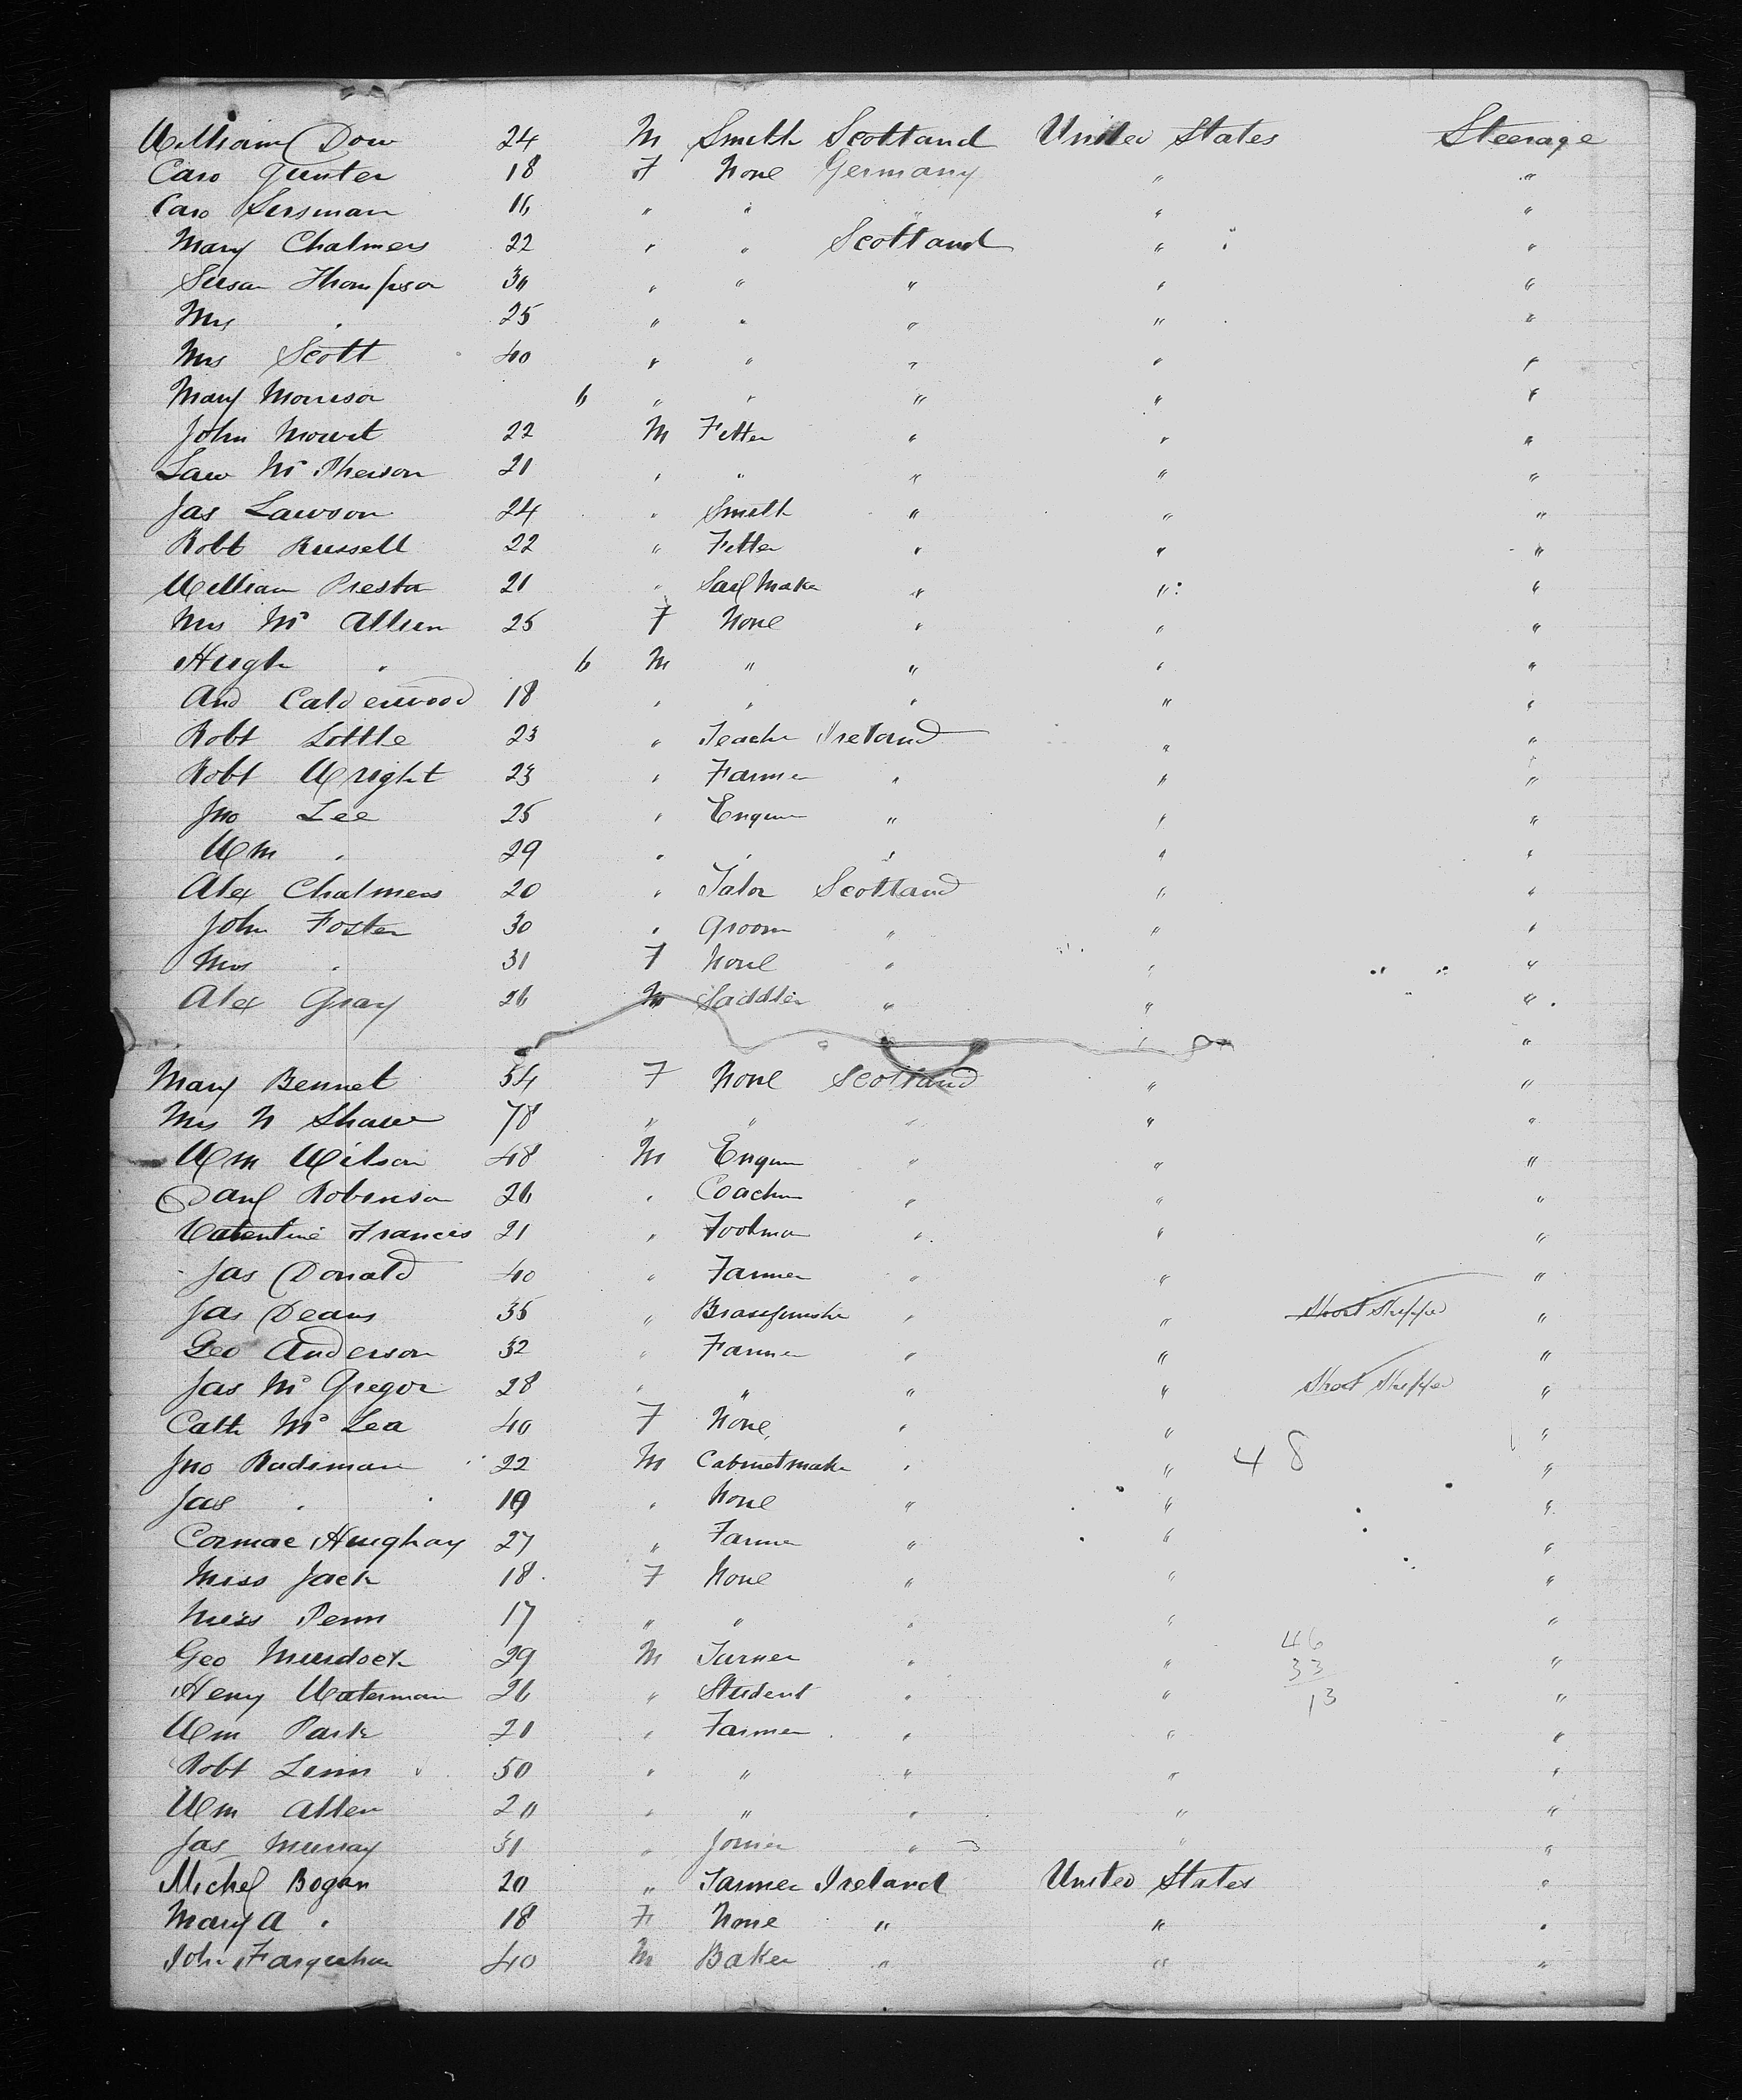 William Dow 24 M Smith Scotland United States Steerage
Caro Gunter 18 F None Germany " "
Caro 16 " " " " "
Mary Chalmers 22 " " Scotland " "
Susan Thompson 30 " " " " "
Mrs " 25 " " " " "
Mrs Scott 40 " " " " "
Mary Morrison 6 " " " " "
John Mowat 22 M Fitter " " "
Law McPherson 21 " " " " "
Jas Lawson 24 " Smith " " "
Robt Russell 22 " Fitter " " "
William Preston 21 " Sail Maker " " "
Mrs Mc 25 F None " " "
Hugh " 6 M " " " "
And Calderwood 18 " " " " "
Robt Little 23 " Teacher Ireland " "
Robt Wright 23 " Farmer " " "
Jno Lee 25 " Engineer " " "
Wm " 29 " " " " "
Alex Chalmers 20 " Talor Scotland " "
John Foster 30 " Groom " " "
Mrs " 31 F None " " "
Alex Gray 26 M Saddler " " "
" "
Mary Bennet 54 F None Scotland " "
Mrs N Shaw 78 " " " " "
Wm Wilson 48 M Engineer " " "
Danl Robinson 26 " Coachm " " "
Valentine Francis 21 " Footman " " "
Jas Donald 40 " Farmer " " "
Jas Deans 35 " Brassfinisher " " Short Shipped "
Geo Anderson 32 " Farmer " " "
Jas McGregor 28 " " " " Short Shipped "
Cath McLea 40 F None " " "
Jno Rudiman 22 M Cabinetmaker " " 48 "
Jas " 19 " None " " "
Cormac Hughay 27 " Farmer " " "
Miss Jack 18 F None " " "
Miss Penn 17 " " " " "
Geo Murdoch 29 M Turner " " 46 "
33
Heny Waterman 26 " Student " " 13 "
Wm Park 21 " Farmer " " "
Robt Linn 50 " " " " "
Wm Allen 20 " " " " "
Jas Murray 31 " Joiner " " "
Michel Bogan 20 " Farmer Ireland United States "
Mary A " 18 F None " " "
John Farquhar 40 M Baker " " "